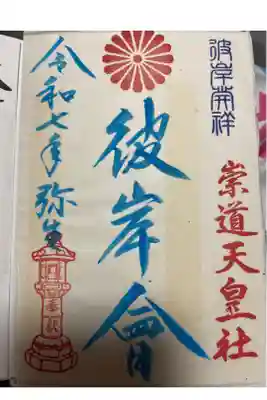 彼岸開祥
崇道天皇社
彼岸會
令和七年弥生